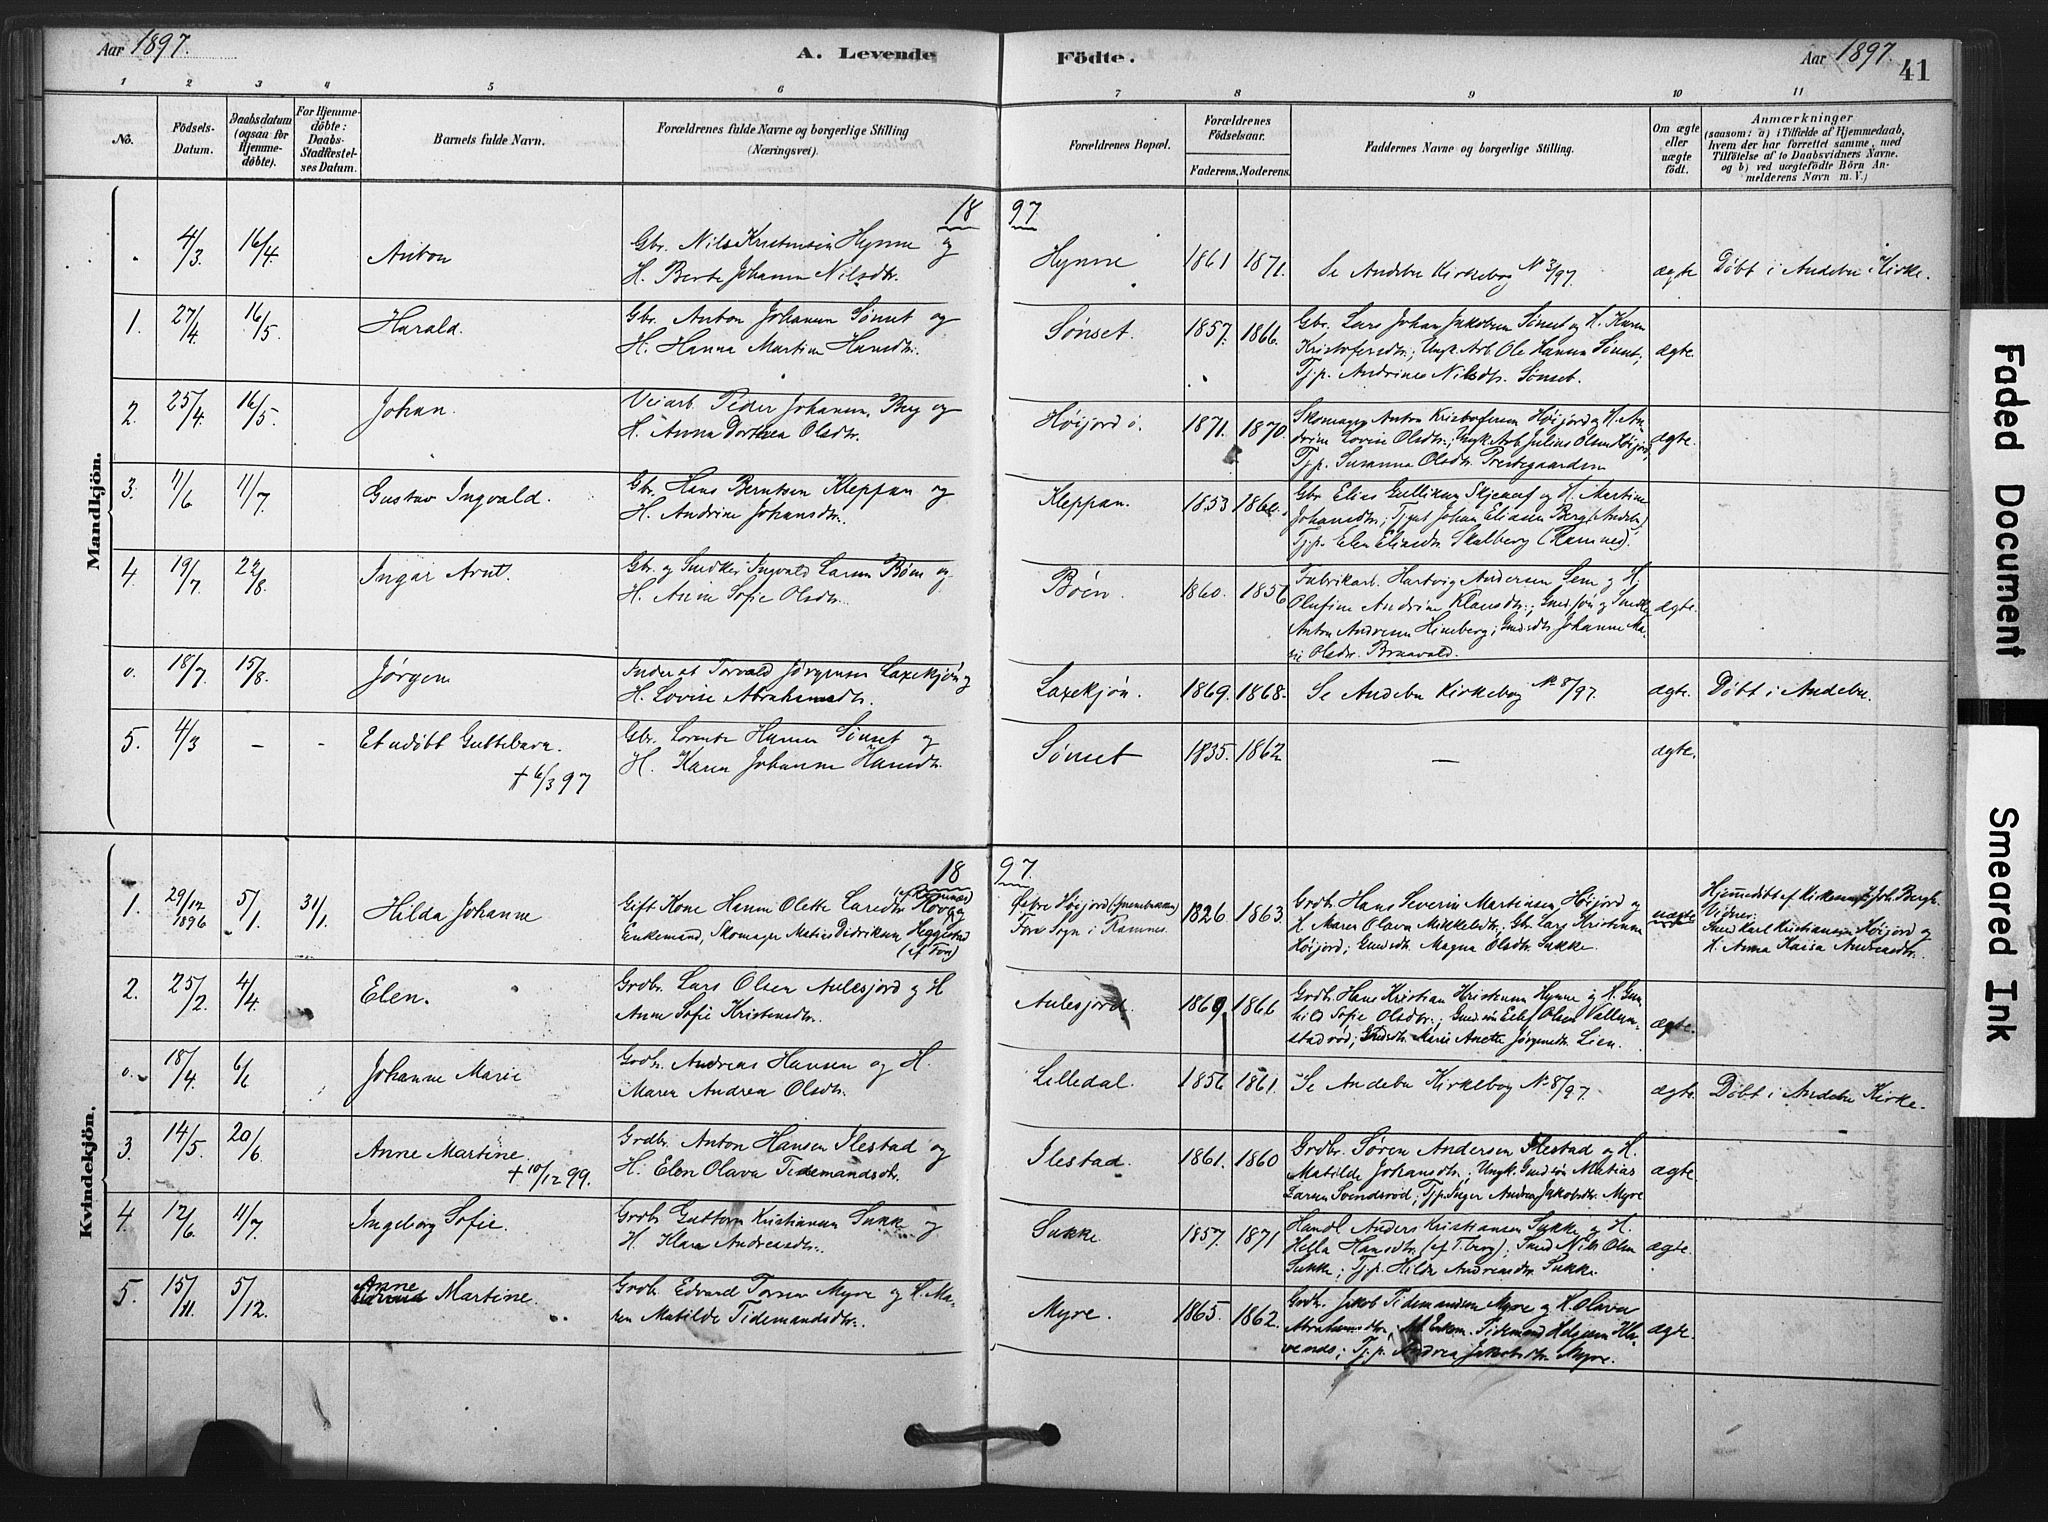 Aar 1897. A. Levende Födte. Aar 1897 41
1 2 3 4 5 6 7 8 9 10 11
No.
Födsels-
Datum.
Daabsdatum
(ogsaa for
Hjemme-
döbte).
For Hjemme-
döbte:
Daabs-
Stadfæstel-
ses Datum.
Barnets fulde Navn.
Forældrenes fulde Navne og borgerlige Stilling
(Næringsvei).
Forældrenes Bopæl.
Forældrenes
Födselsaar.
Faderens. Moderens.
Faddernes Navne og borgerlige Stilling.
Om ægte
eller
uægte
födt.
Anmærkninger
(saasom: a) i Tilfælde af Hjemmedaab,
hvem der har forrettet samme, med
Tilföielse af to Daabsvidners Navne.
og b) ved uægtefödte Börn An-
melderens Navn m. V.)
Mandkjön.
18 97
4/3. 16/4. Anton
Gbr. Nils Kristensen Hynne og
H. Berte Johanne Nilsdtr.
Hynne 1861 1871. Se Andebu Kirkebog No 3/97. ægte Døbt i Andebu Kirke.
1. 27/4 16/5. Harald.
Gbr. Anton Johansen Sønset og
H. Hanna Martine Hansdtr.
Sønset. 1857. 1866.
Gbr. Lars Johan Jakobsen Sønset og H. Karen
Kristofersdtr.; Ungk. Arb. Ole Hansen Sønset;
Tj.p. Andrine Nilsdtr. Sønset.
ægte.
2. 25/4. 16/5. Johan.
Veiarb. Peder Johansen Berg og
H. Anna Dorthea Olsdtr.
Høijord ö. 1871. 1870.
Skomager Anton Kristofersen Høijord og H. An-
drine Lovise Olsdtr.; Ungk. Arb. Julius Olsen Høijord;
Tj.p. Susanna Olsdtr. Prestegaarden
ægte.
3. 1/6 11/7 Gustav Ingvald.
Gbr. Hans Berntsen Kleppan og
H. Andrine Johansdtr.
Kleppan. 1853
Gbr. Elias Gulliksen og H. Martine
Johansdtr.; Tjgut Johan Eliasen Berg (Andebu);
Tj.p. Elen Eliasdtr. Skalberg (Ramnes).
4 19/7. 22/8. Ingar Arnt.
Gbr. og Snedker Ingvald Larsen Bøen og
H. Anne Sofie Olsdtr.
Bøen. 1860. 1856
Fabrikarb. Hartvig Andersen Sem og H.
Olufine Andrine Klausdtr.; Grdsøn og Snedker
Anton Andresen Hineberg; Grdsdtr. Johanne Ma-
rie Olsdtr. Bruavald.
ægte.
o. 18/7. 15/8. Jørgen
Inderst Torvald Jørgensen Laxekjøn og
H. Lovise Abrahamsdtr.
Laxekjøn. 1869. 1868. Se Andebu Kirkebog No 8/97. ægte. Døbt i Andebu.
5. 4/3 - - Et udøbt Guttebarn.
+ 6/3 97
Gbr. Lorents Hansen Sønset og
H. Karen Johanne Hansdtr.
Sønset 1835. 1862. — ægte.
Kvindekjön.
18 97.
1. 29/12 1896 5/1. 31/1. Hilda Johanne
Gift Kone Hanne Olette Larsdtr.
Enkemand, Skomager Matias Didriksen Heggestad
(af Fon)
Øvre Høijord
Fons Sogn i Ramnes.
1826. 1863.
Grdbr. Hans Severin Martinsen Høijord og
H. Maren Olava Mikkelsdtr.; Gbr. Lars Kristiansen
Høijord; Grdsdtr. Magna Olsdtr. Sukke.
uægte
Hjemmedøbt af Kirkesanger Joh. Bergh.
Vidner:
Smed Karl Kristiansen Høijord og
H. Anna Kaisa Andreasdtr.
2. 25/2. 4/4. Elen.
Grdbr. Lars Olsen Aulesjord og H.
Anne Sofie Kristensdtr.
Aulesjord. 1869. 1866
Grdbr. Hans Kristian Kristensen Hynne og H. Gun-
hild Sofie Olsdtr.; Grdsøn Ellef Olsen Vallum-
stadrød; Grdsdtr. Marie Anette Jørgensdtr. Lien.
ægte.
o. 18/4. 6/6 Johanne Marie
Grdbr. Andreas Hansen og H.
Maren Andrea Olsdtr.
Lilledal. 1856 1861. Se Andebu Kirkebog No 8/97. ægte. Døbt i Andebu Kirke.
3. 14/5. 20/6. Anne Martine.
+ 10/12 99.
Grdbr. Anton Hansen Ilestad og
H. Elen Olava Tidemandsdtr.
Ilestad. 1861. 1860
Grdbr. Søren Andersen Ilestad og H.
Matilde Johansdtr.; Ungk. Grdsøn Matias
Larsen Svindsrød; Tj.p. Inger Andrea Jakobsdtr. Myre
ægte.
4. 12/6. 11/7. Ingeborg Sofie.
Grdbr. Guttorm Kristiansen Sukke og
H. Klara Andreasdtr.
Sukke. 1857. 1871
Handl. Anders Kristiansen Sukke og H.
Hella Hansdtr. (af T.berg); Smed Nils Olsen
Sukke; Tj.p. Hilda Andreasdtr. Sukke.
ægte.
5. 15/11. 5/12. Anne Martine.
Grdbr. Edvard Torsen Myre og H. Ma-
ren Matilde Tidemandsdtr.
Myre. 1865. 1862.
Grdbr. Jakob Tidemandsen Myre og H. Olava
Abrahamsdtr.; Tidemand Helgesen
Tj.p. Andrea Jakobsdtr. Myre.
ægte.
Faded Document
Smeared Ink